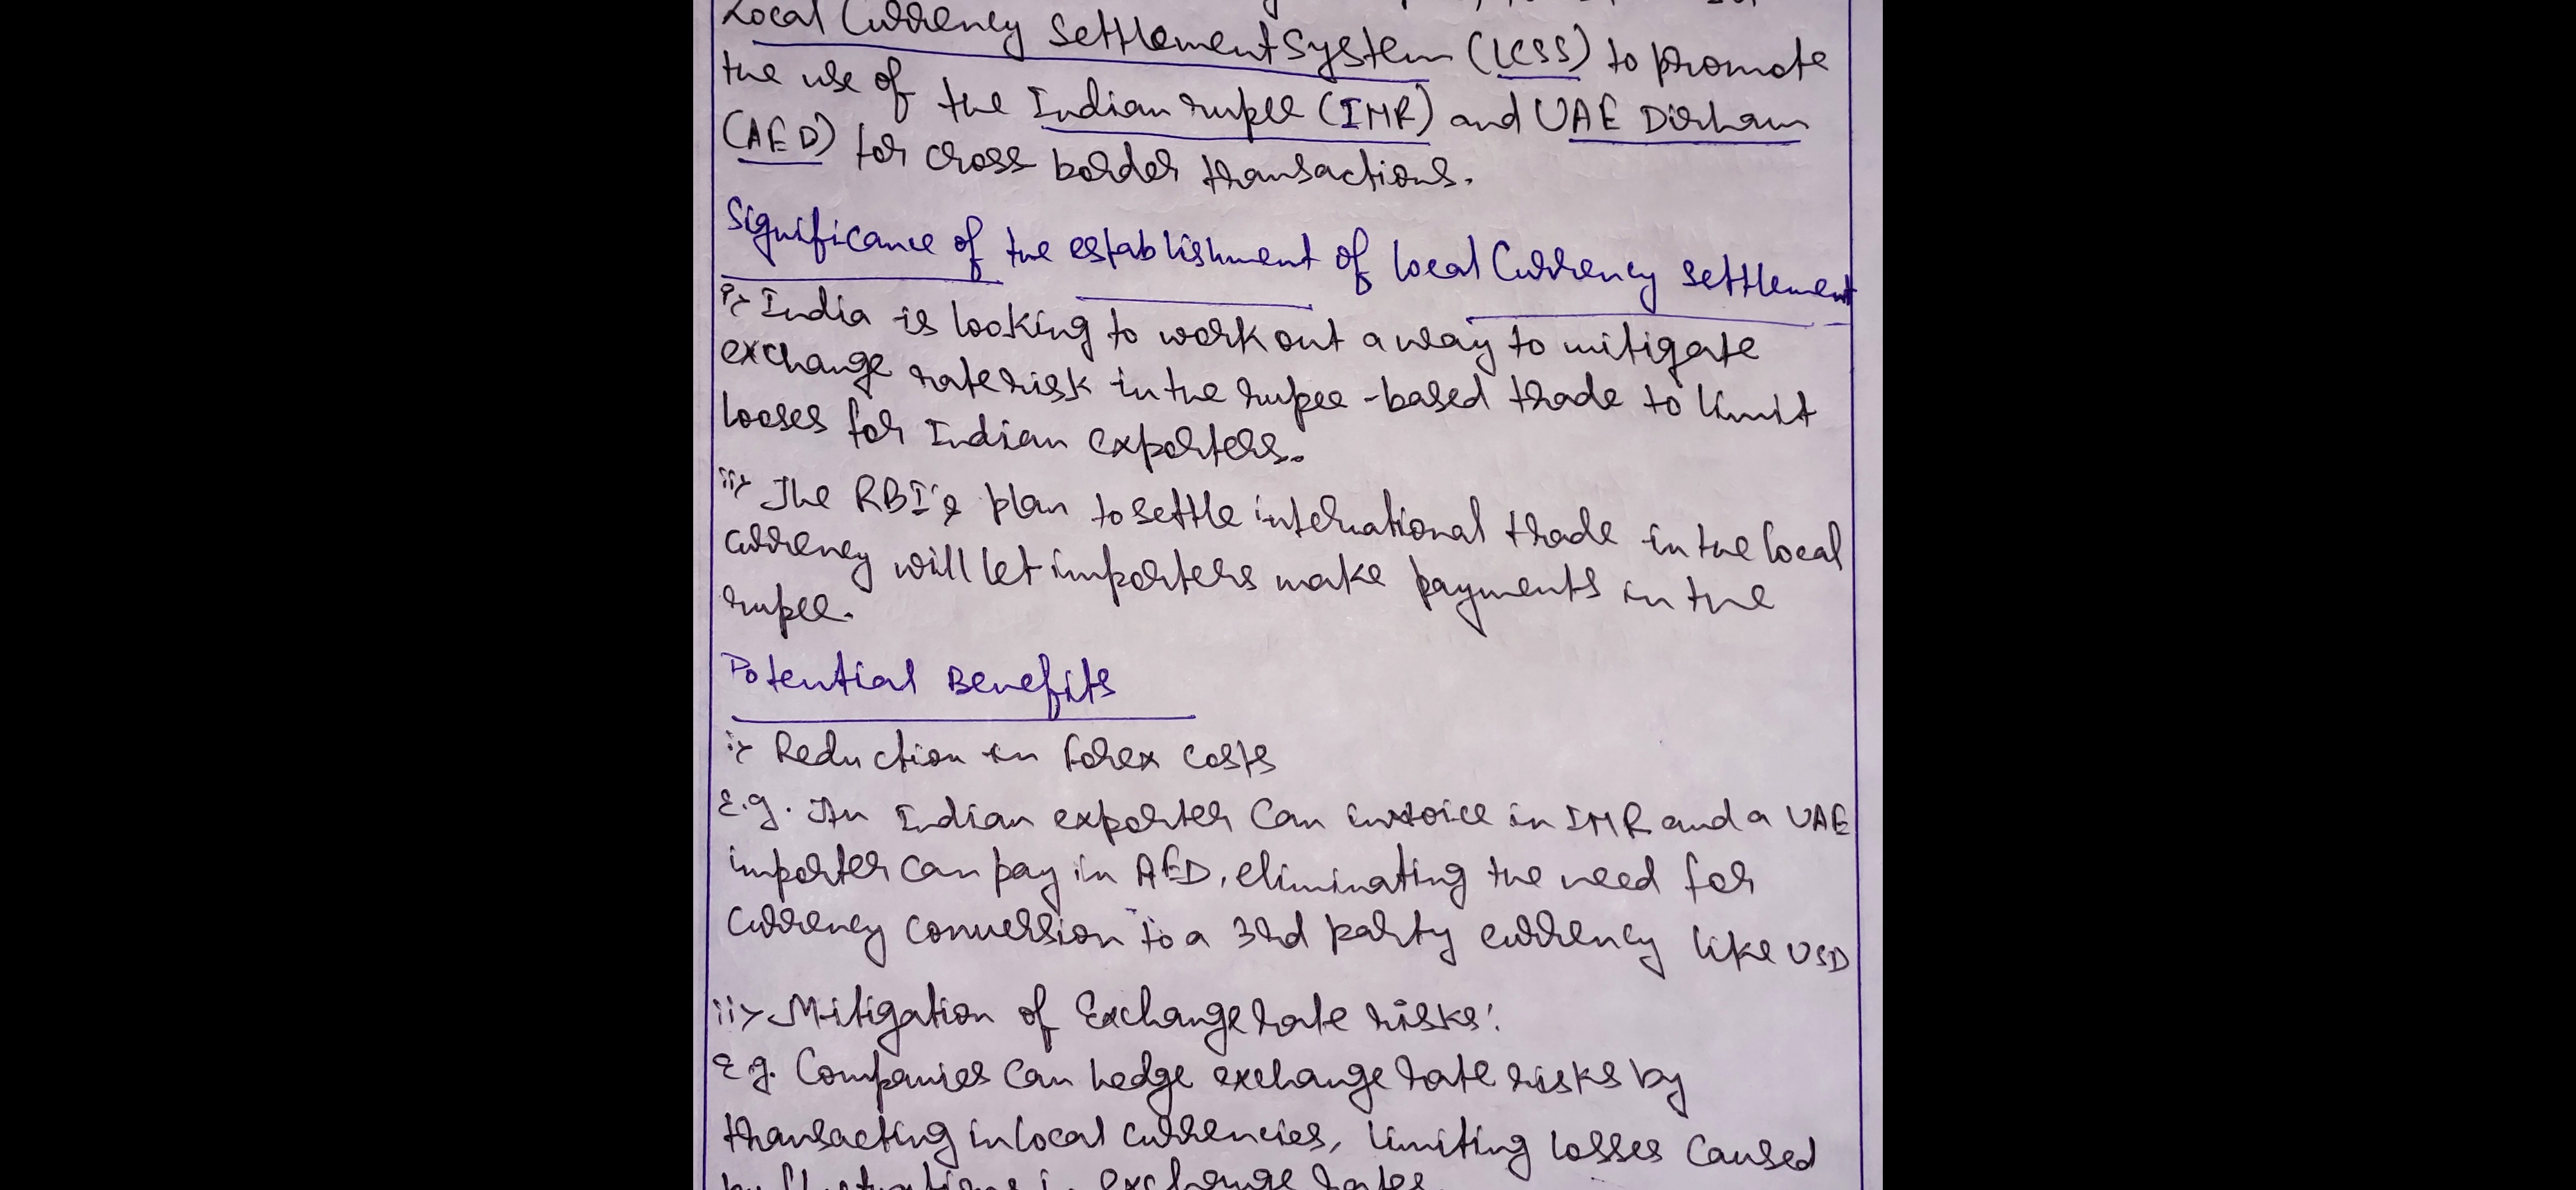 Local Currency Settlement System (LCSS) to promote
the use of the Indian rupee (IMR) and UAE Dirham
(AED) for cross border transactions.
Significance of the establishment of local Currency settlement
i> India is looking to work out a way to mitigate
exchange rate risk in the rupee-based trade to limit
looses for Indian exporters.
ii> The RBI's plan to settle international trade in the local
currency will let importers make payments in the
rupee.
Potential Benefits
i> Reduction in forex costs
E.g. An Indian exporter can invoice in IMR and a UAE
importer can pay in AED, eliminating the need for
currency conversion to a 3rd party currency like USD
ii> Mitigation of Exchange rate risks:
E.g. Companies can hedge exchange rate risks by
transacting in local currencies, limiting losses caused
by fluctuations in exchange rates.